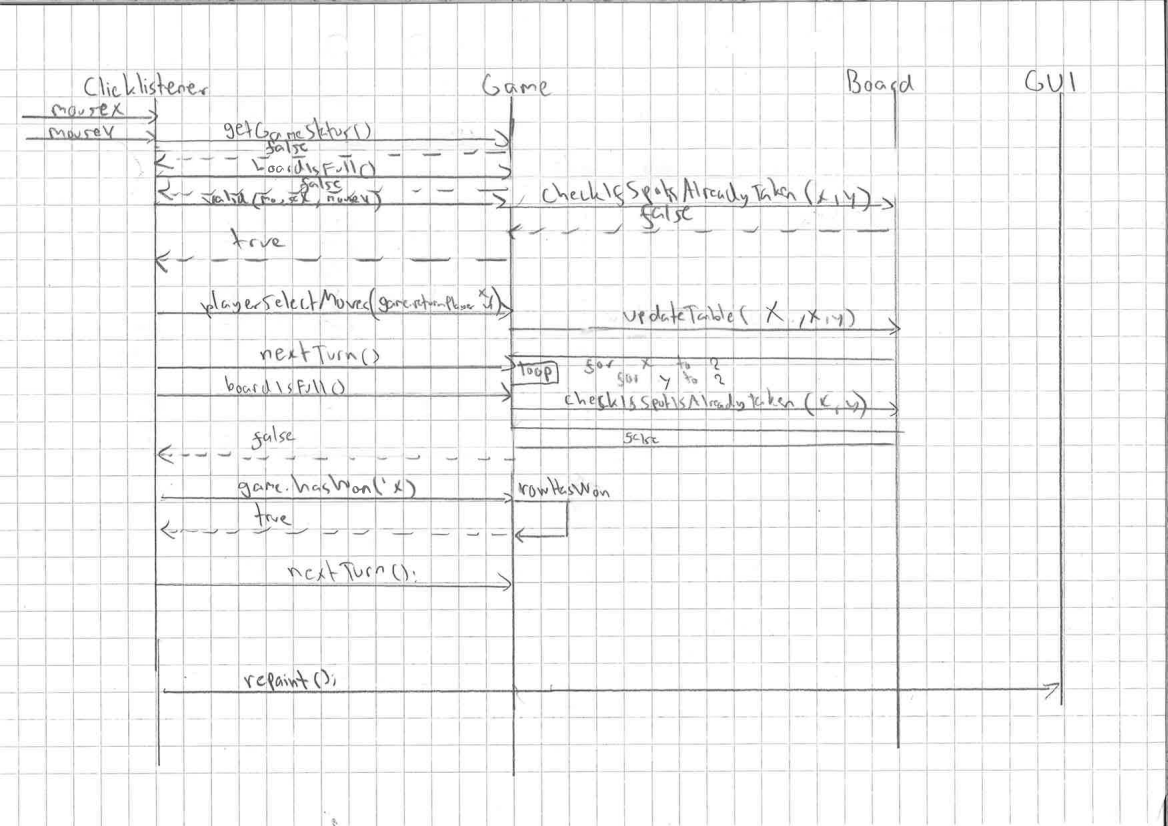 Clicklistener Game Board GUI
mouseX
mouseY
getGameStatus()
false
boardIsFull()
false
valid(mouseX, mouseY) checkIfSpotIsAlreadyTaken(x,y)
false
true
playerSelectMoves(game.returnPlayer x,y)
updateTable( X ,x,y)
nextTurn()
loop for x to 2
for y to 2
boardIsFull()
checkIfSpotIsAlreadyTaken(x,y)
false
false
game.hasWon('x) rowHasWon
true
nextTurn();
repaint();